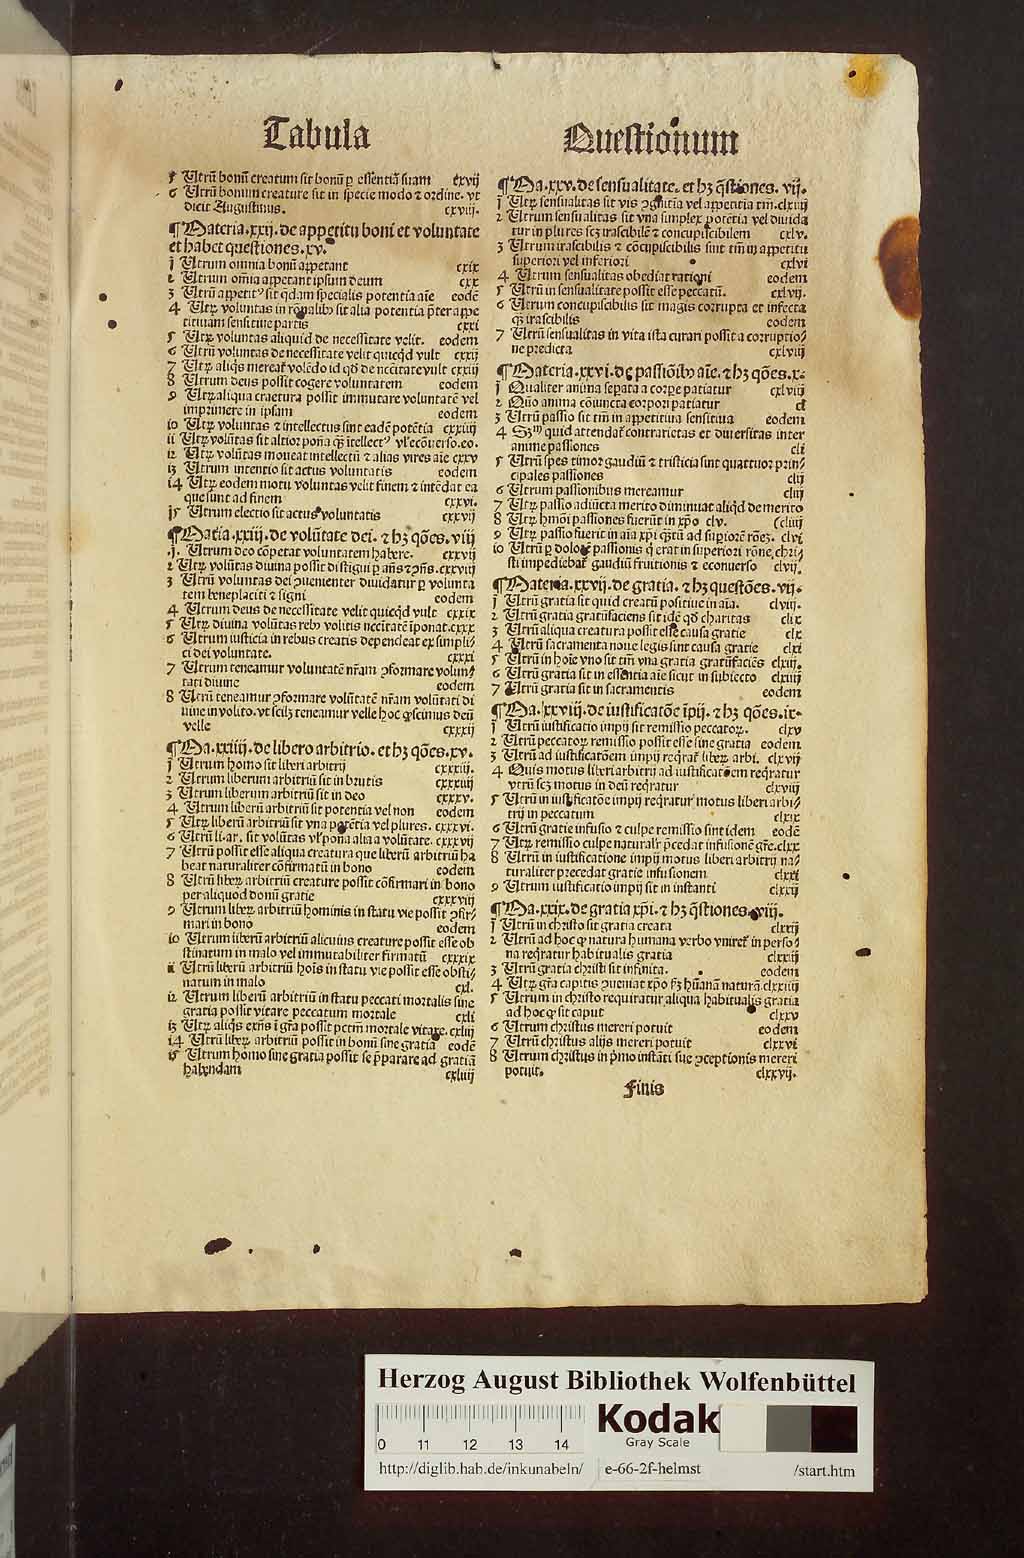 Tabula
Questionum
5 Utrū bonū creatum sit bonū ꝑ essentiā suam cxvij
6 Utrū bonum creature sit in specie modo ⁊ ordine. vt
dicit Augustinus. cxviij.
¶Materia.xxij. de appetitu boni et voluntate
et habet questiones.xv.
j Utrum omnia bonū appetant cxix
2 Utrum omnia appetant ipsum deum cxx
3 Utrū appetitꝰ sit q̄dam specialis potentia aīe eodē
4 Utrꝫ voluntas in rōnalibꝰ sit alia potentia p̄ter appe
titiuam sensitiue partis cxxi
5 Utrꝫ voluntas aliquid de necessitate velit. eodem
6 Utrū voluntas de necessitate velit quicq̄d vult cxxij
7 Utrꝫ aliq̄s mereat᷑ volēdo id qd̄ de nccītate vult cxxiij
8 Utrum deus possit cogere voluntatem eodem
9 Utrꝫ aliqua craetura possit immutare voluntatē vel
imprimere in ipsam eodem
10 Utrꝫ voluntas ⁊ intellectus sint eadē potētia cxxiiij
11 Utrꝫ volūtas sit altior potn̄a q̄ꝫ itellectꝰ vl' ecōuerso.eo.
12 Utrꝫ volūtas moueat intellectū ⁊ alias vires aīe cxxv
13 Utrum intentio sit actus voluntatis eodem
14 Utrꝫ eodem motu voluntas velit finem ⁊ intēdat ea
que sunt ad finem cxxvi.
15 Utrum electio sit actus voluntatis cxxvij
¶Matia.xxiij. de volūtate dei. ⁊ hꝫ qōes. viij
.j. Utrum deo cōpetat voluntatem habere. cxxvij
2 Utrꝫ volūtas diuina possit distigui ꝑ an̄s ⁊ ꝯn̄s. cxxviij
3 Utrū voluntas dei ꝯuenienter diuidatur ꝑ volunta
tem beneplaciti ⁊ signi eodem
4 Utrum deus de necessitate velit quicq̄d vult cxxix
5 Utrꝫ diuina volūtas rebꝰ volitis nccītatē īponat.cxxx
6 Utrum iusticia in rebus creatis dependeat ex simpli⸗
ci dei voluntate. cxxxi
7 Utrum teneamur voluntatē nr̄am ꝯformare volun⸗
tati diuine eodem
8 Utrū teneamur ꝯformare volūtatē nr̄am volūtati di
uine in volito. vt scilꝫ teneamur velle hoc qd̄ scimus deū
velle cxxxij
¶Ma.xxiiij. de libero arbitrio. et hꝫ qōes.xv.
j Utrum homo sit liberi arbitrij cxxxiij.
2 Utrum liberum arbitriū sit in brutis cxxxiiij
3 Utrum liberum arbitriū sit in deo cxxxv.
4 Utrum liberū arbitriū sit potentia vel non eodem
5 Utrꝫ liberū arbitriū sit vna potētia vel plures. cxxxvi.
6 Utrū li.ar. sit volūtas vl' potn̄a alia a volūtate. cxxxvij
7 Utrū possit esse aliqua creatura que liberū arbitriū ha
beat naturaliter cōfirmatū in bono eodem
8 Utrū liberꝫ arbitriū creature possit cōfirmari in bono
per aliquod donū gratie cxxxviij
9 Utrum liberꝫ arbitriū hominis in statu vie possit ꝯfir⸗
mari in bono eodem
10 Utrum liberū arbitriū alicuius creature possit esse ob
stinatum in malo vel immutabiliter firmatū cxxxix
11 Utrū liberū arbitriū hoīs in statu vie possit esse obsti⸗
natum in malo cxl.
12 Utrum liberū arbitriū in statu peccati mortalis sine
gratia possit vitare peccatum mortale cxli
13 Utrꝫ aliq̄s exn̄s ī gr̄a possit pctm̄ mortale vitare. cxlij
14 Utrū liberꝫ arbitriū possit in bonū sine gratia eodē
15 Utrum homo sine gratia possit se p̄parare ad gratiā
habendam cxliij
¶Ma.xxv. de sensualitate. et hꝫ q̄stiones. vij.
j Utrꝫ sensualitas sit vis ꝯgnitia vel appetitia tm̄. cxliiij
2 Utrum sensualitas sit vna simplex potētia vel diuida
tur in plures scꝫ irascibilē ⁊ concupiscibilem cxlv.
3 Utrum irascibilis ⁊ cōcupiscibilis sint tm̄ in appetitu
superiori vel inferiori cxlvi
4 Utrum sensualitas obediat rationi eodem
5 Utrū in sensualitate possit esse peccatū. cxlvij.
6 Utrum concupiscibilis sit magis corrupta et infecta
q̄ꝫ irascibilis eodem
7 Utrū sensualitas in vita ista curari possit a corruptio⸗
ne predicta cxlviij
¶Materia.xxvi. de passiōibꝰ aīe. ⁊ hꝫ qōes.x.
j Qualiter anima sepata a corpe patiatur cxlviij
2 Quō anima cōiuncta corpori patiatur cl
3 Utrū passio sit tm̄ in appetitiua sensitiua eodem
4 Scꝫm quid attendat᷑ contrarietas et diuersitas inter
anime passiones cli
5 Utrū spes timor gaudiū ⁊ tristicia sint quattuor prin⸗
cipales passiones clij
6 Utrum passionibus mereamur cliij
7 Utrꝫ passio adiūcta merito diminuat aliqd de merito
8 Utrꝫ hmōi passiones fuerūt in xp̄o clv. (cliiij
9 Utrꝫ passio fuerit in aīa xp̄i q̄ꝫtū ad supiorē rōneꝫ. clvi
10 Utrū ꝑ dolorē passionis q̄ erat in superiori rōne, chri⸗
sti impediebat᷑ gaudiū fruitionis ⁊ econuerso clvij.
¶Materia.xxvij. de gratia. ⁊ hꝫ questōes. vij.
j Utrū gratia sit quid creatū positiue in aīa. clviij.
2 Utrū gratia gratūfaciens sit idē qd̄ charitas clix
3 Utrū aliqua creatura possit esse causa gratie clx
4 Utrū sacramenta noue legis sint causa gratie clxi
5 Utrū in hoīe vno sit tm̄ vna gratia gratūfaciēs clxij.
6 Utrū gratia sit in essentia aīe sicut in subiecto clxiij
7 Utrū gratia sit in sacramentis eodem
¶Ma.xxviij. de iustificatōe īpij. ⁊ hꝫ qōes. ix.
j Utrū iustificatio impij sit remissio peccatoꝝ. clxv
2 Utrū peccatoꝝ remissio possit esse sine gratia eodem
3 Utrū ad iustificatōem impij reqrat᷑ liberꝫ arbi. clxvij
4 Quis motus liberi arbitrij ad iustificatōem reqratur
vtrū scꝫ motus in deū reqratur clxviij
5 Utrū in iustificatōe impij reqratur motus liberi arbi⸗
trij in peccatum clxix
6 Utrū gratie infusio ⁊ culpe remissio sint idem eodē
7 Utrꝫ remissio culpe naturalr̄ p̄cedat infusionē gr̄e. clxx
8 Utrū in iustificatione impij motus liberi arbitrij na⸗
turaliter precedat gratie infusionem clxxi
9 Utrum iustificatio impij sit in instanti clxxij
¶Ma.xxix. de gratia xp̄i. ⁊ hꝫ q̄stiones. viij.
j Utrū in christo sit gratia creata clxxij
2 Utrū ad hoc ꝙ natura humana verbo vniret᷑ in perso⸗
na reqratur habitualis gratia clxxiij
3 Utrū gratia christi sit infinita. eodem
4 Utrꝫ gr̄a capitis ꝯueniat xp̄o scꝫ hūanā naturā. clxxiiij
5 Utrum in christo requiratur aliqua habitualis gratia
ad hoc ꝙ sit caput clxxv
6 Utrum christus mereri potuit eodem
7 Utrū christus alijs mereri potuit clxxvi
8 Utrum christus in p̄mo instāti sue ꝯceptionis mereri
potuit. clxxvij.
Finis
Herzog August Bibliothek Wolfenbüttel
0 11 12 13 14
Kodak
Gray Scale
http://diglib.hab.de/inkunabeln/ e-66-2f-helmst /start.htm